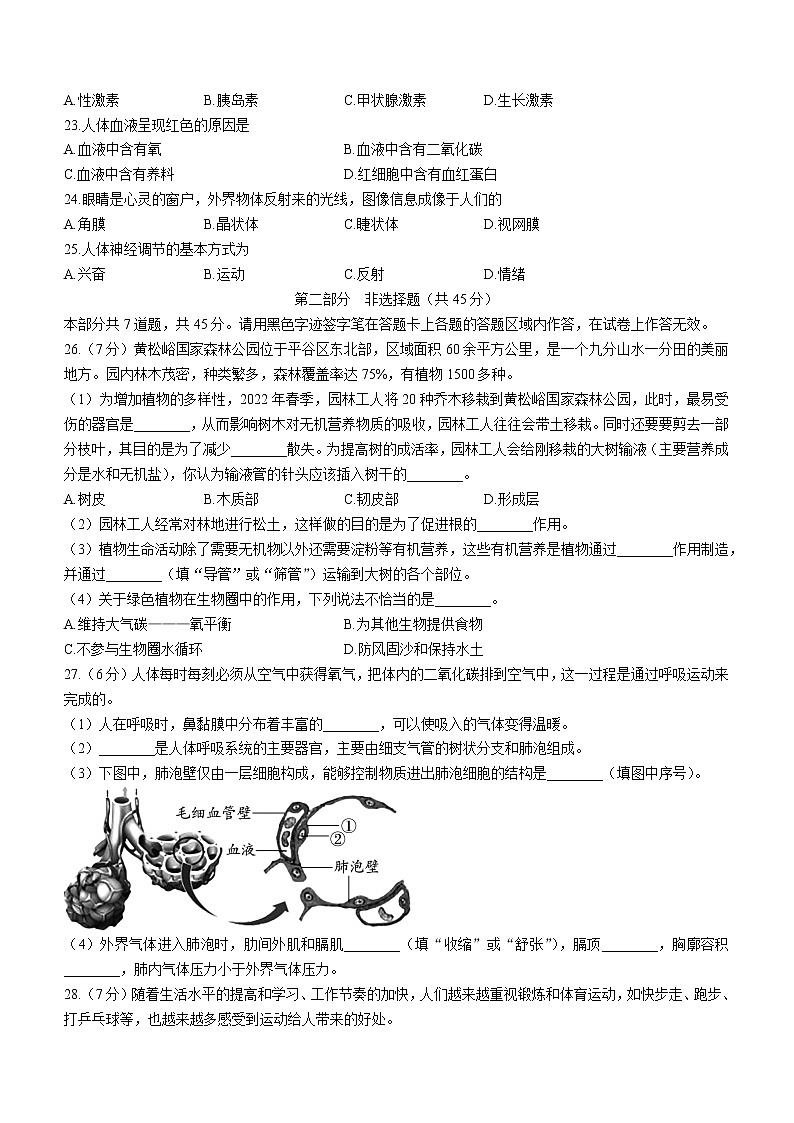 A.性激素 B.胰岛素 C.甲状腺激素 D.生长激素
23.人体血液呈现红色的原因是
A.血液中含有氧 B.血液中含有二氧化碳
C.血液中含有养料 D.红细胞中含有血红蛋白
24.眼睛是心灵的窗户，外界物体反射来的光线，图像信息成像于人们的
A.角膜 B.晶状体 C.睫状体 D.视网膜
25.人体神经调节的基本方式为
A.兴奋 B.运动 C.反射 D.情绪
第二部分 非选择题（共45分）
本部分共7道题，共45分。请用黑色字迹签字笔在答题卡上各题的答题区域内作答，在试卷上作答无效。
26.（7分）黄松峪国家森林公园位于平谷区东北部，区域面积60余平方公里，是一个九分山水一分田的美丽
地方。园内林木茂密，种类繁多，森林覆盖率达75%，有植物1500多种。
（1）为增加植物的多样性，2022年春季，园林工人将20种乔木移栽到黄松峪国家森林公园，此时，最易受
伤的器官是________，从而影响树木对无机营养物质的吸收，园林工人往往会带土移栽。同时还要要剪去一部
分枝叶，其目的是为了减少________散失。为提高树的成活率，园林工人会给刚移栽的大树输液（主要营养成
分是水和无机盐），你认为输液管的针头应该插入树干的________。
A.树皮 B.木质部 C.韧皮部 D.形成层
（2）园林工人经常对林地进行松土，这样做的目的是为了促进根的________作用。
（3）植物生命活动除了需要无机物以外还需要淀粉等有机营养，这些有机营养是植物通过________作用制造，
并通过________（填“导管”或“筛管”）运输到大树的各个部位。
（4）关于绿色植物在生物圈中的作用，下列说法不恰当的是________。
A.维持大气碳———氧平衡 B.为其他生物提供食物
C.不参与生物圈水循环 D.防风固沙和保持水土
27.（6分）人体每时每刻必须从空气中获得氧气，把体内的二氧化碳排到空气中，这一过程是通过呼吸运动来
完成的。
（1）人在呼吸时，鼻黏膜中分布着丰富的________，可以使吸入的气体变得温暖。
（2）________是人体呼吸系统的主要器官，主要由细支气管的树状分支和肺泡组成。
（3）下图中，肺泡壁仅由一层细胞构成，能够控制物质进出肺泡细胞的结构是________（填图中序号）。
毛细血管壁
①
②
血液
肺泡壁
（4）外界气体进入肺泡时，肋间外肌和膈肌________（填“收缩”或“舒张”），膈顶________，胸廓容积
________，肺内气体压力小于外界气体压力。
28.（7分）随着生活水平的提高和学习、工作节奏的加快，人们越来越重视锻炼和体育运动，如快步走、跑步、
打乒乓球等，也越来越多感受到运动给人带来的好处。